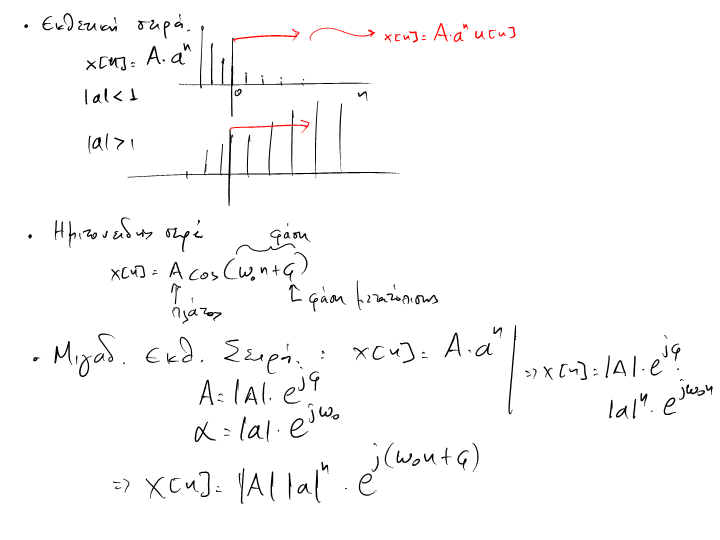 • Εκθετική σειρά.
x[n] = A·aⁿ
x[n] = A·aⁿ u[n]
|a| < 1
0
n
|a| > 1
• Ημιτονειδής σειρά
φάση
x[n] = A cos(ω₀n+φ)
πλάτος
φάση μετατόπισης
• Μιγαδ. Εκθ. Σειρά. : x[n] = A·aⁿ
A = |A|·e^{jφ}
α = |a|·e^{jω₀}
=> x[n] = |A|·e^{jφ}·
|a|ⁿ·e^{jω₀n}
=> x[n] = |A||a|ⁿ·e^{j(ω₀n+φ)}